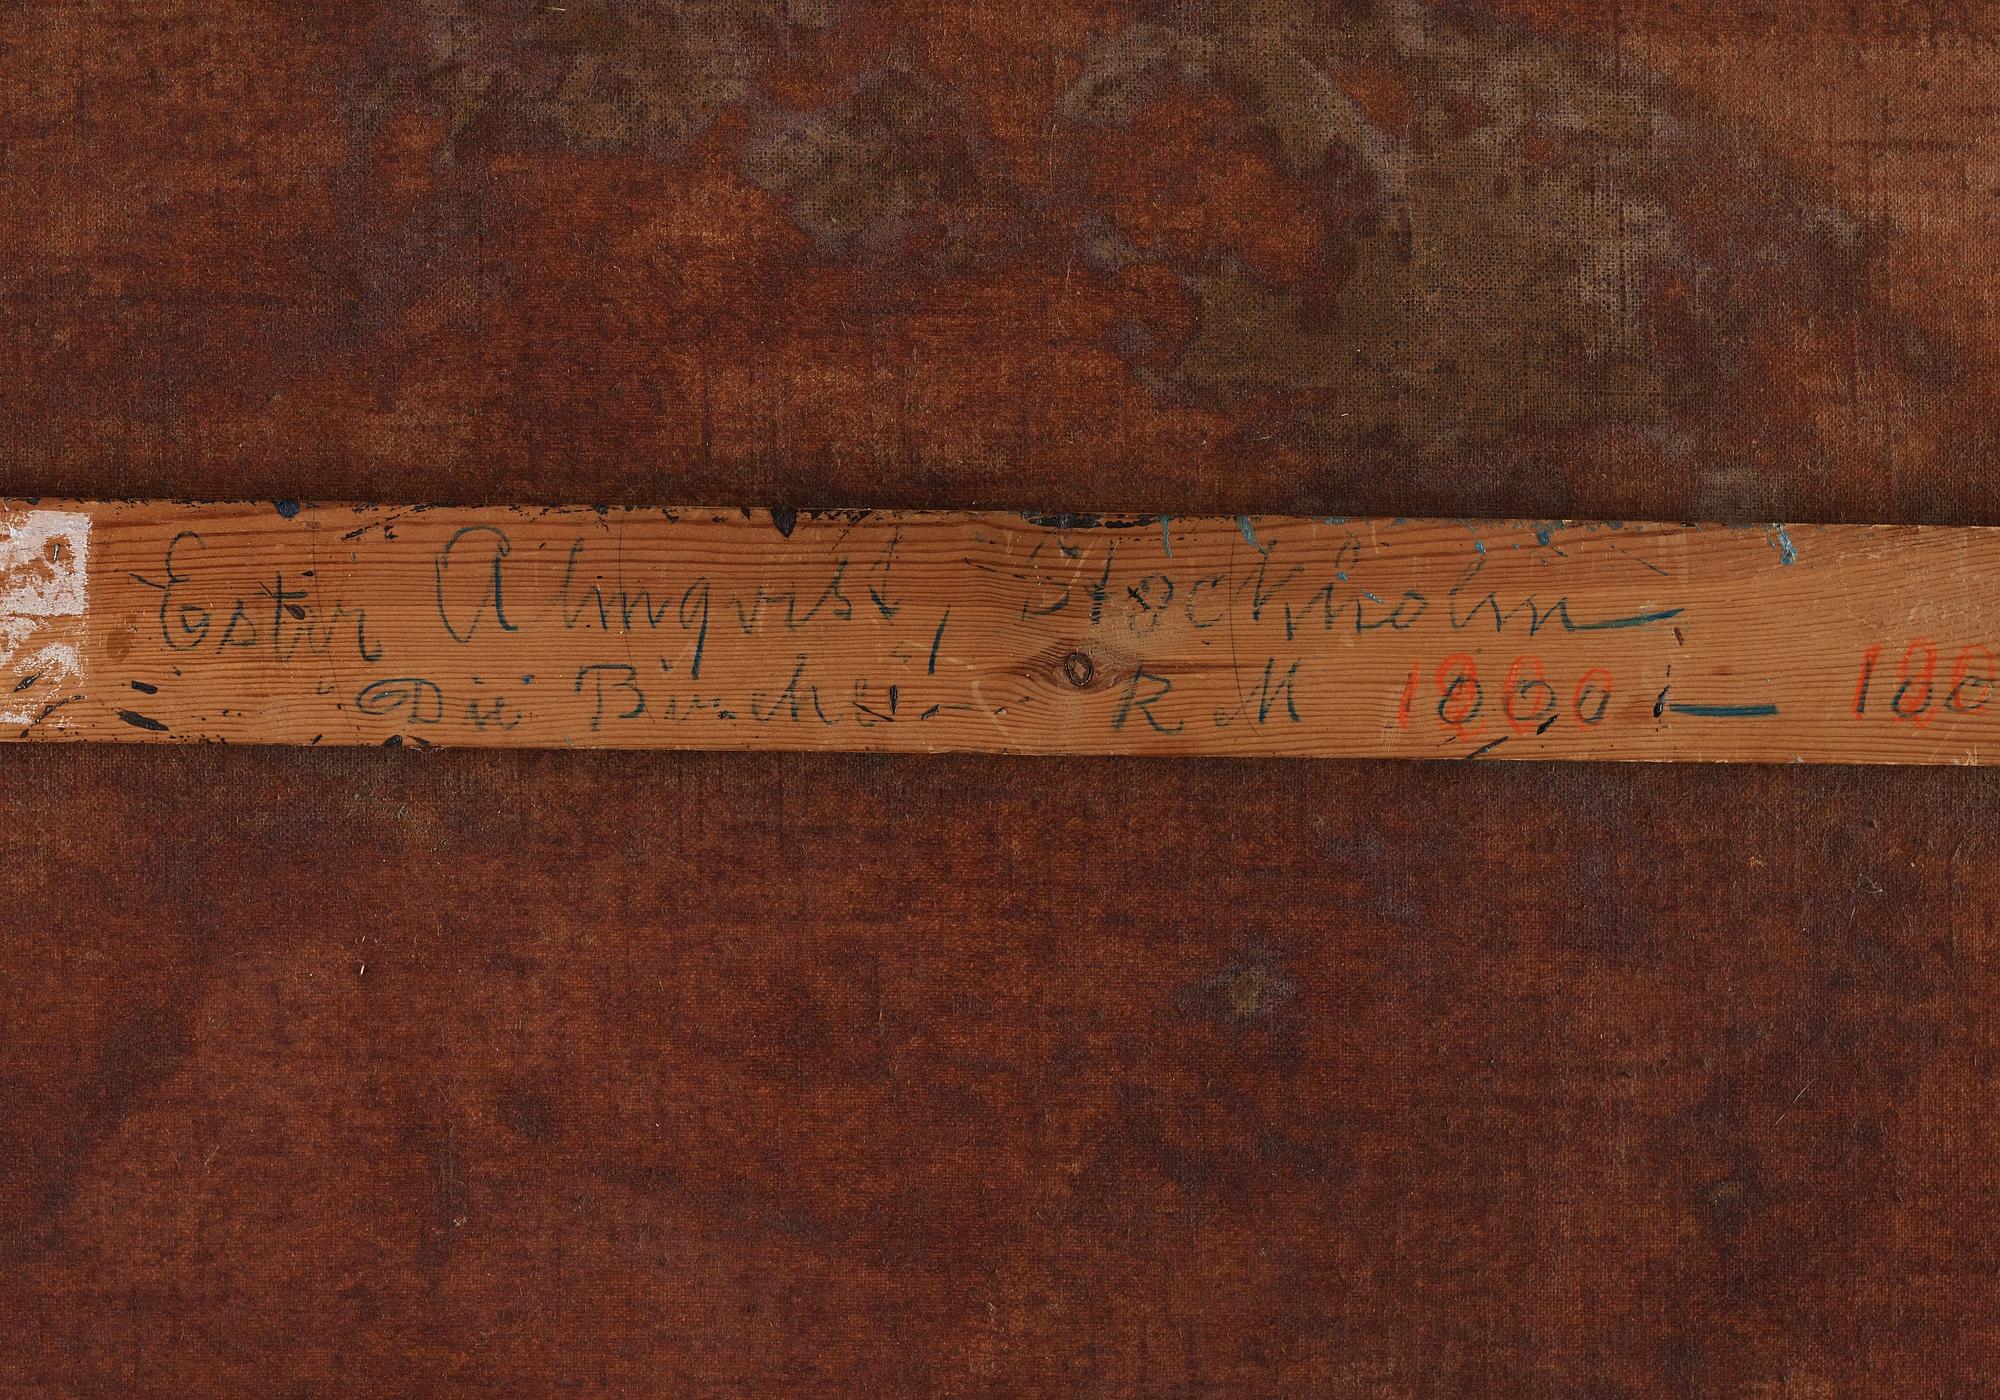 Ester Almqvist, Stockholm
Die Birche R M 1000 —